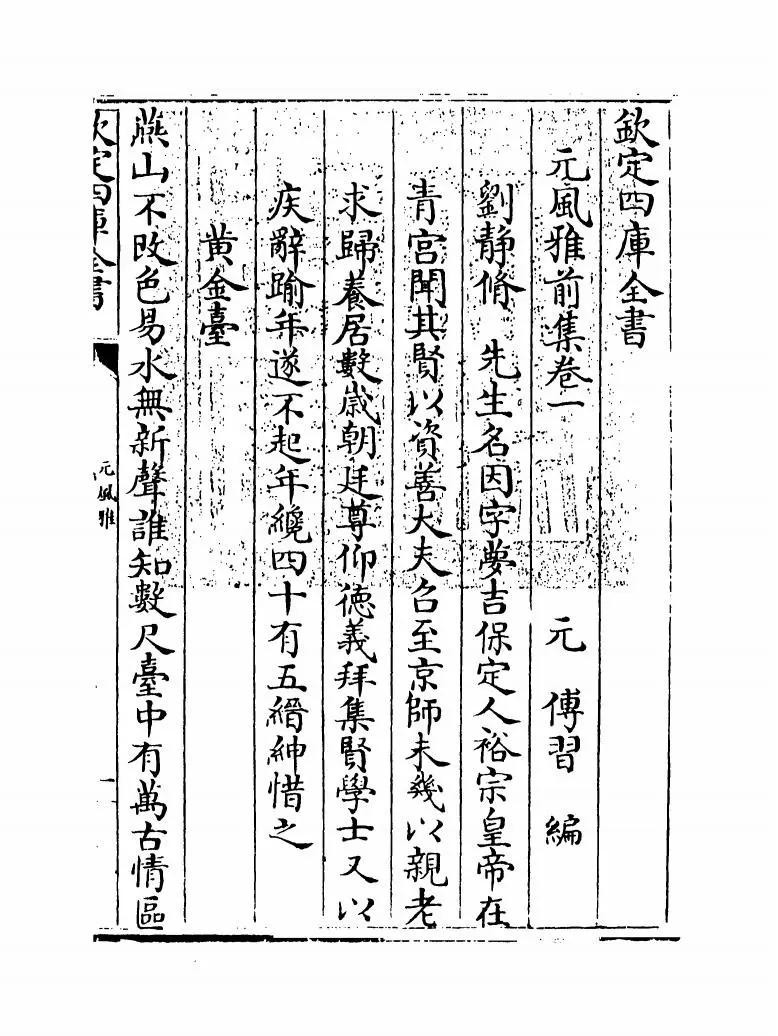 欽定四庫全書
元風雅前集卷一
元 傅習 編
劉靜脩 先生名因字夢吉保定人裕宗皇帝在
青宮聞其賢以資善大夫召至京師未幾以親老
求歸養居數歲朝廷尊仰徳義拜集賢學士又以
疾辭踰年遂不起年纔四十有五縉紳惜之
黄金臺
燕山不改色易水無新聲誰知數尺臺中有萬古情區
欽定四庫全書
元風雅
一